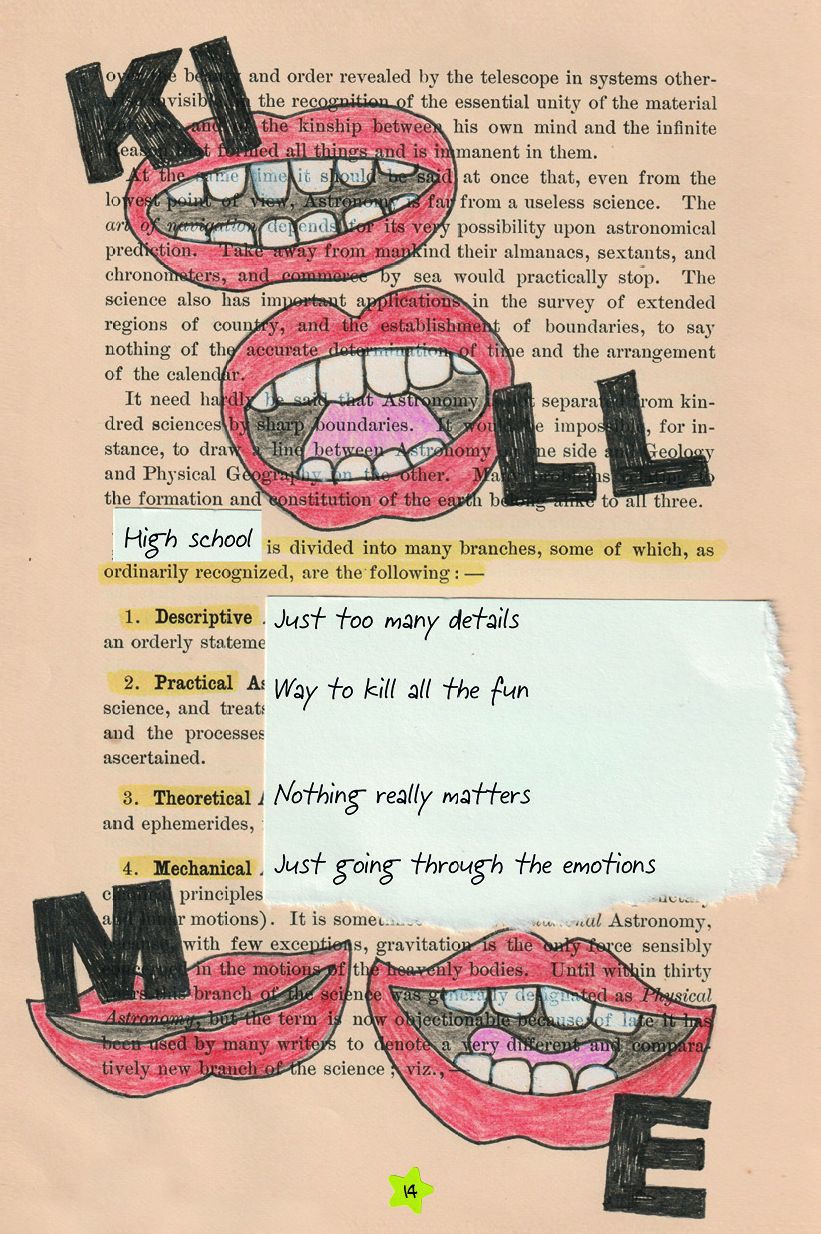 KI
and order revealed by the telescope in systems other-
the recognition of the essential unity of the material
the kinship between his own mind and the infinite
that formed all things and is immanent in them.
At the same time it should be said at once that, even from the
lowest point of view, Astronomy is far from a useless science. The
art of navigation depends for its very possibility upon astronomical
prediction. Take away from mankind their almanacs, sextants, and
chronometers, and commerce by sea would practically stop. The
science also has important applications in the survey of extended
regions of country, and the establishment of boundaries, to say
nothing of the accurate determination of time and the arrangement
of the calendar.
It need hardly be said that Astronomy is not separated from kin-
dred sciences by sharp boundaries. It would be impossible, for in-
stance, to draw a line between Astronomy on one side and Geology
and Physical Geography on the other. Many problems relating to
the formation and constitution of the earth belong alike to all three.
LL
High school is divided into many branches, some of which, as
ordinarily recognized, are the following: —
1. Descriptive Just too many details
an orderly stateme
2. Practical As Way to kill all the fun
science, and treats
and the processes
ascertained.
3. Theoretical Nothing really matters
and ephemerides,
4. Mechanical Just going through the emotions
principles
motions). It is Astronomy,
M
with few exceptions, gravitation is the only force sensibly
in the motions of the heavenly bodies. Until within thirty
this branch of the science was generally designated as Physical
Astronomy, but the term is now objectionable because of late it has
been used by many writers to denote a very different and compara-
tively new branch of the science; viz., —
E
14